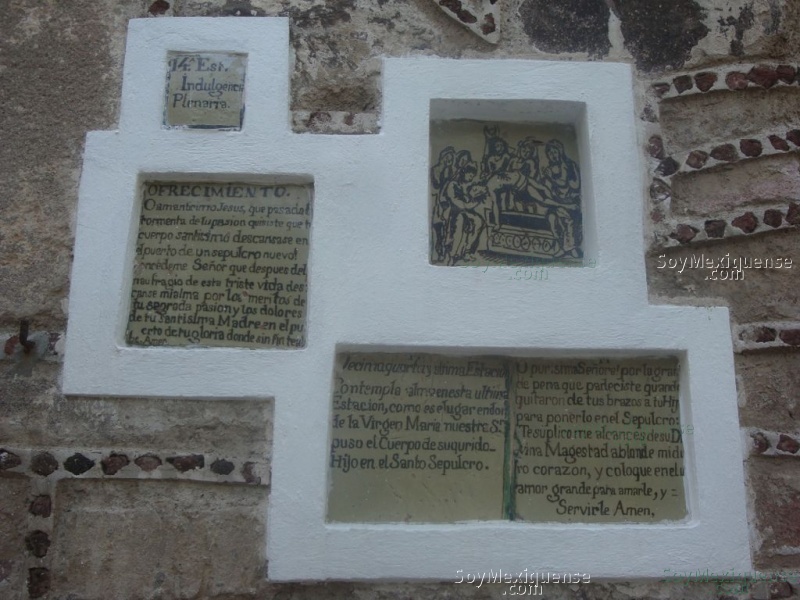 14ª Est.
Indulgencia
Plenaria.
OFRECIMIENTO.
O amantísimo Jesus, que pasada l
tormenta de tu pasion quisiste que t
cuerpo santísimo descansase en
el puerto de un sepulcro nuevo:
concédeme Señor que despues del
naufragio de esta triste vida des
canse mi alma por los meritos de
tu sagrada pasion y los dolores
de tu santísima Madre, en el pu
erto de tu gloria donde sin fin te
Decima quarta y ultima Estacio
Contempla alma en esta ultima
Estacion, como es el lugar en don
de la Virgen Maria nuestra Sra
puso el Cuerpo de su qurido
Hijo en el Santo Sepulcro.
O purisima Señora! por la gran
de pena que padeciste quando
quitaron de tus brazos a tu Hijo
para ponerlo en el Sepulcro:
Te suplico me alcances de su Di
vina Magestad ablonde mi du
ro corazon, y coloque en el su
amor grande para amarle, y
Servirle Amen.
SoyMexiquense
.com
SoyMexiquense
.com
SoyMexiquense
.com